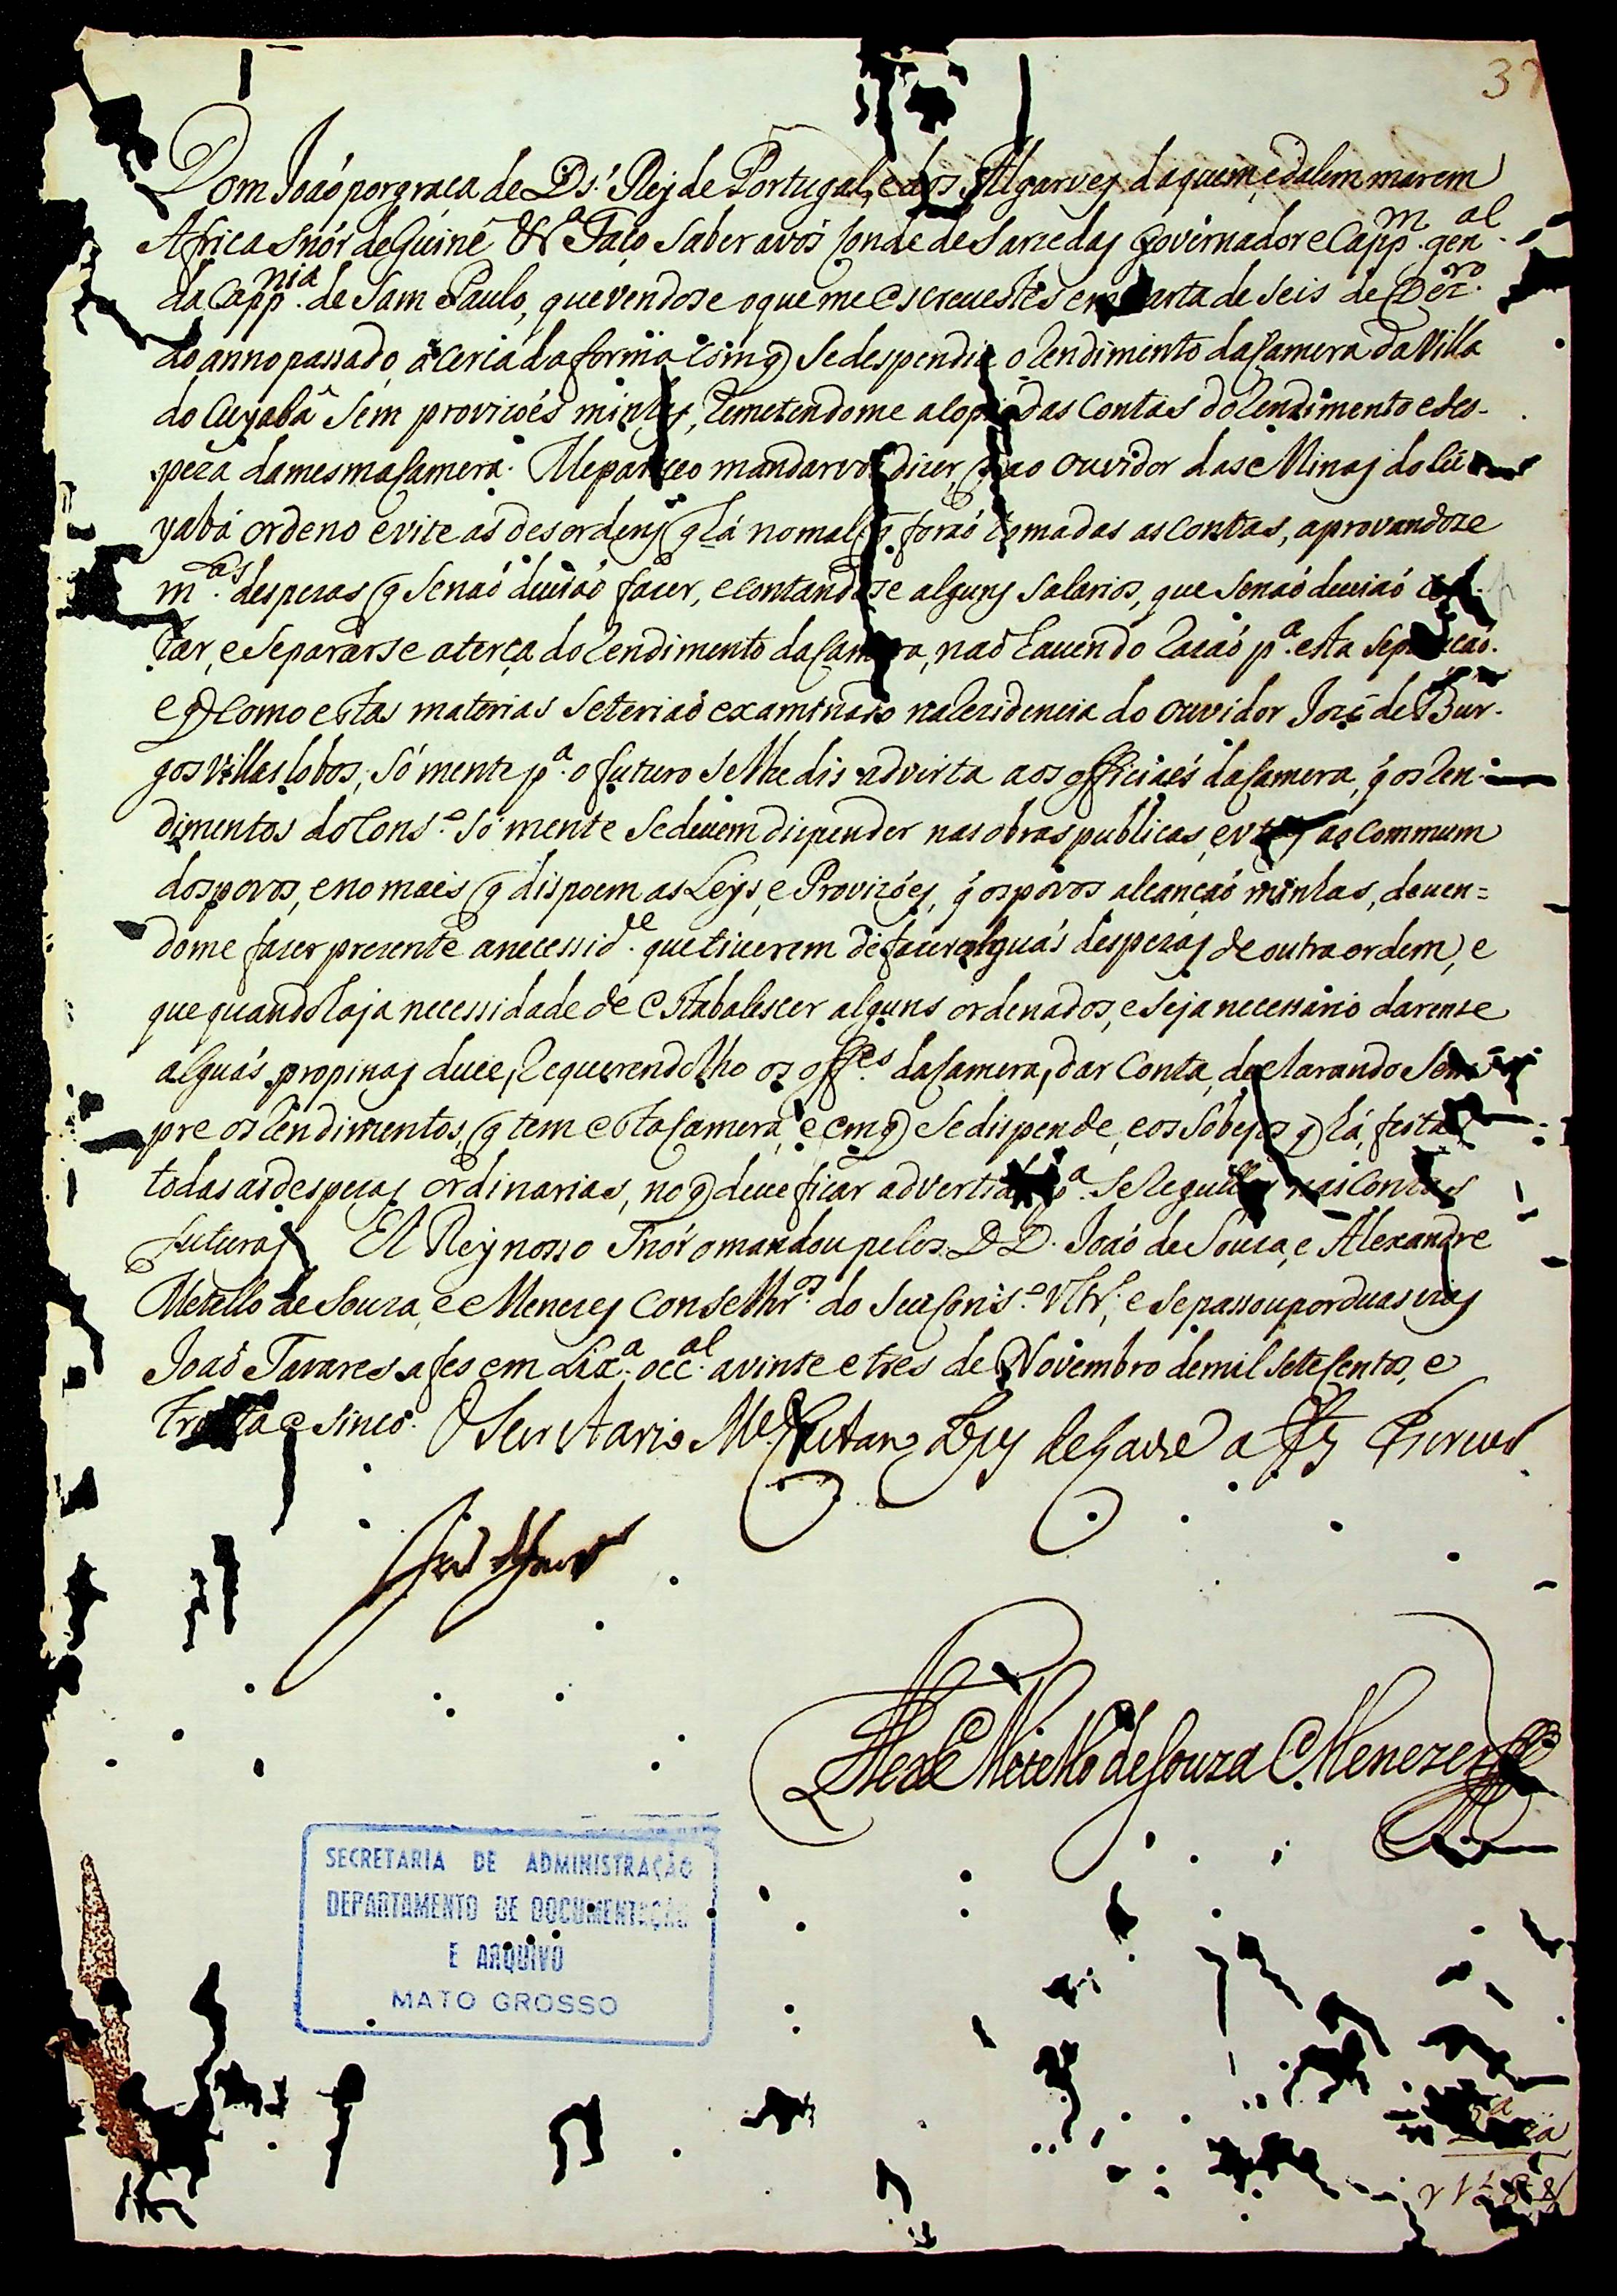 37
Dom Joaó por graça de Ds.' Rej de Portugal, e dos Algarves, daquem, e dalem mar em
Africa Snór de Guiné &ª Faço saber a vós Conde de Sarzedas Governador e Capp.m gen.al
da Capp.nia de Sam Paulo, que vendose o que me escrevestes em carta de seis de Dez.ro
do anno passado á cerca da forma com q̃ se despendia o rendimento da Camera da Villa
do Cuyabâ sem provizoés minhas, remetendome a copia das contas do rendimento e des-
peza da mesma Camera. Me pareceo mandarvos dizer, q̃ ao ouvidor das Minas do Cu
yabá ordeno evite as desordens q̃ há no mal q̃ foraó tomadas as contas, aprovandose
m.as despezas q̃ se naó deviaó fazer, e contandose alguns salarios, que se naó deviaó con
tar, e separarse a terça do rendimento da Camera, naó havendo razaó p.ª esta separaçaó.
e q̃ como estas materias se teriaó examinado na rezidencia do ouvidor Jozé de Bur-
gos Villas lobos, só mente p.ª o futuro se lhe dis advirta aos officiaés da Camera, q̃ os ren-
dimentos do Cons.º só mente se devem dispender nas obras publicas, e uteis ao commum
dos povos, e no mais q̃ dispoem as Leys, e Provizões, q̃ os povos alcançaó minhas, deven=
dome fazer prezente a necessid.e que tiverem de fazer alguás despezas de outra ordem, e
que quando haja necessidade de estabalescer alguns ordenados, e seja necessario darense
alguás propinas deve, requerendolho os off.es da Camera, dar conta, declarando sem
pre os rendimentos, q̃ tem esta Camera, e em q̃ se dispende, e os sobejos q̃ há, feitas
todas as despezas ordinarias, no q̃ deve ficar advertido p.ª se regular nas contas
futuras El Rey nosso Snór o mandou pelos D D. Joaó de Souza, e Alexandre
Metello de Souza, e Menezes Conselhr.os do seu Cons.º Ultr.º e se passou por duas vias
Joaó Tavares a fes em Lix.ª occ.al a vinte e tres de Novembro de mil setecentos, e
trinta e sinco. O Secretario M.el Caetano Lopes de Lavre a fes escrever
Alex.e Metello de Souza e Menezes
SECRETARIA DE ADMINISTRAÇÃO
DEPARTAMENTO DE DOCUMENTAÇÃO
E ARQUIVO
MATO GROSSO